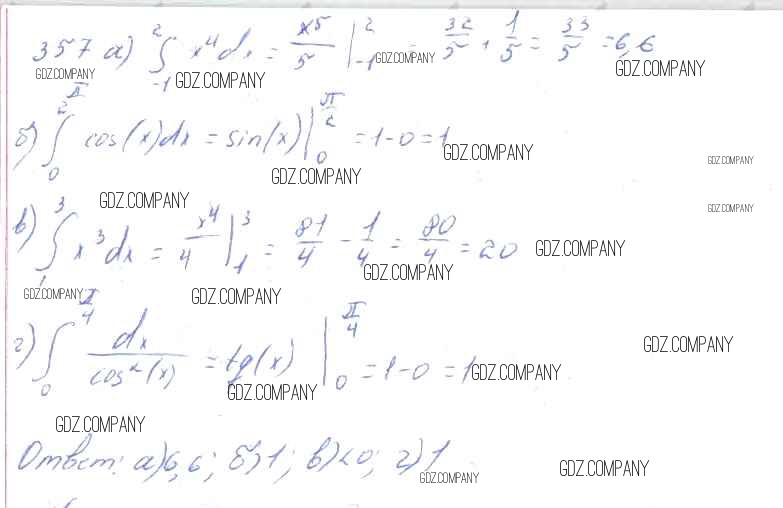 357 а) ∫₋₁² x⁴dx = x⁵/5 |₋₁² = 32/5 + 1/5 = 33/5 = 6,6
GDZ.COMPANY GDZ.COMPANY GDZ.COMPANY GDZ.COMPANY
б) ∫₀^(π/2) cos(x)dx = sin(x) |₀^(π/2) = 1-0 = 1
GDZ.COMPANY GDZ.COMPANY
GDZ.COMPANY
GDZ.COMPANY GDZ.COMPANY
в) ∫₁³ x³dx = x⁴/4 |₁³ = 81/4 - 1/4 = 80/4 = 20 GDZ.COMPANY
GDZ.COMPANY
GDZ.COMPANY GDZ.COMPANY
г) ∫₀^(π/4) dx/cos²(x) = tg(x) |₀^(π/4) = 1-0 = 1
GDZ.COMPANY GDZ.COMPANY
GDZ.COMPANY
GDZ.COMPANY
Ответ: а) 6,6; б) 1; в) 20; г) 1
GDZ.COMPANY GDZ.COMPANY